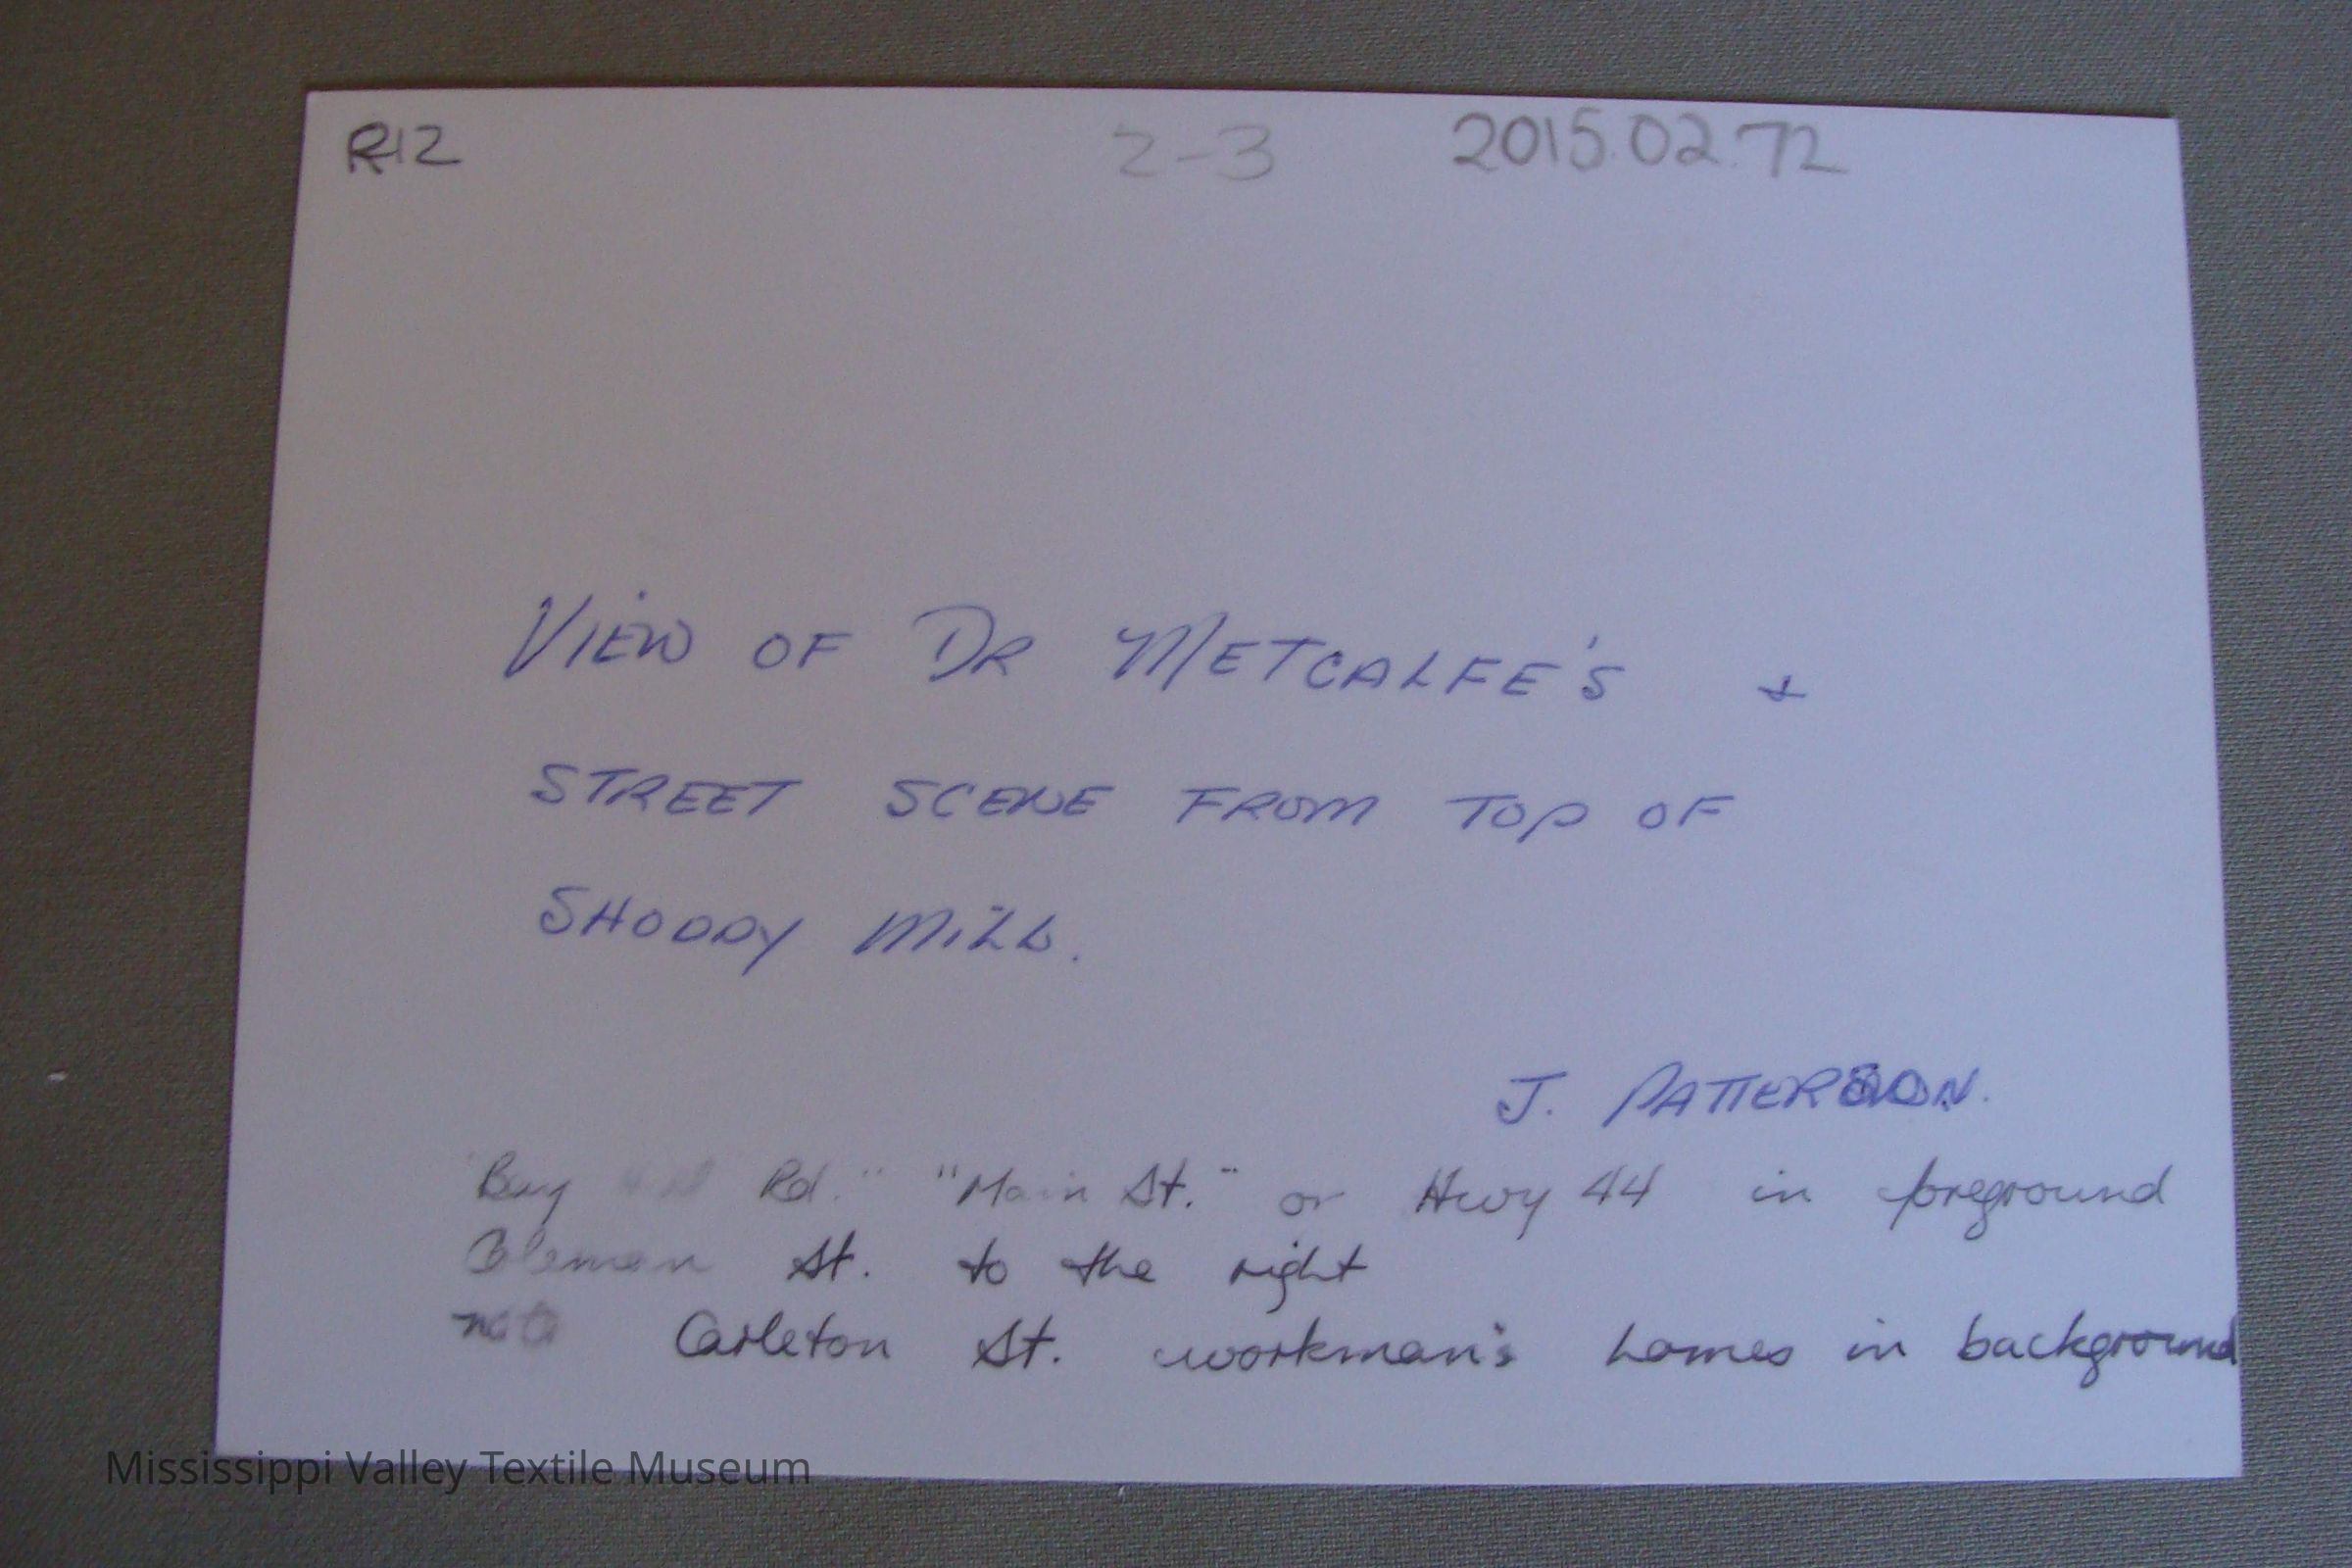 R12 2-3 2015.02.72
VIEW OF DR METCALFE'S +
STREET SCENE FROM TOP OF
SHODDY MILL.
J. PATTERSON.
Bay Rd." "Main St." or Hwy 44 in foreground
Coleman St. to the right
note Carleton St. workman's homes in background
Mississippi Valley Textile Museum